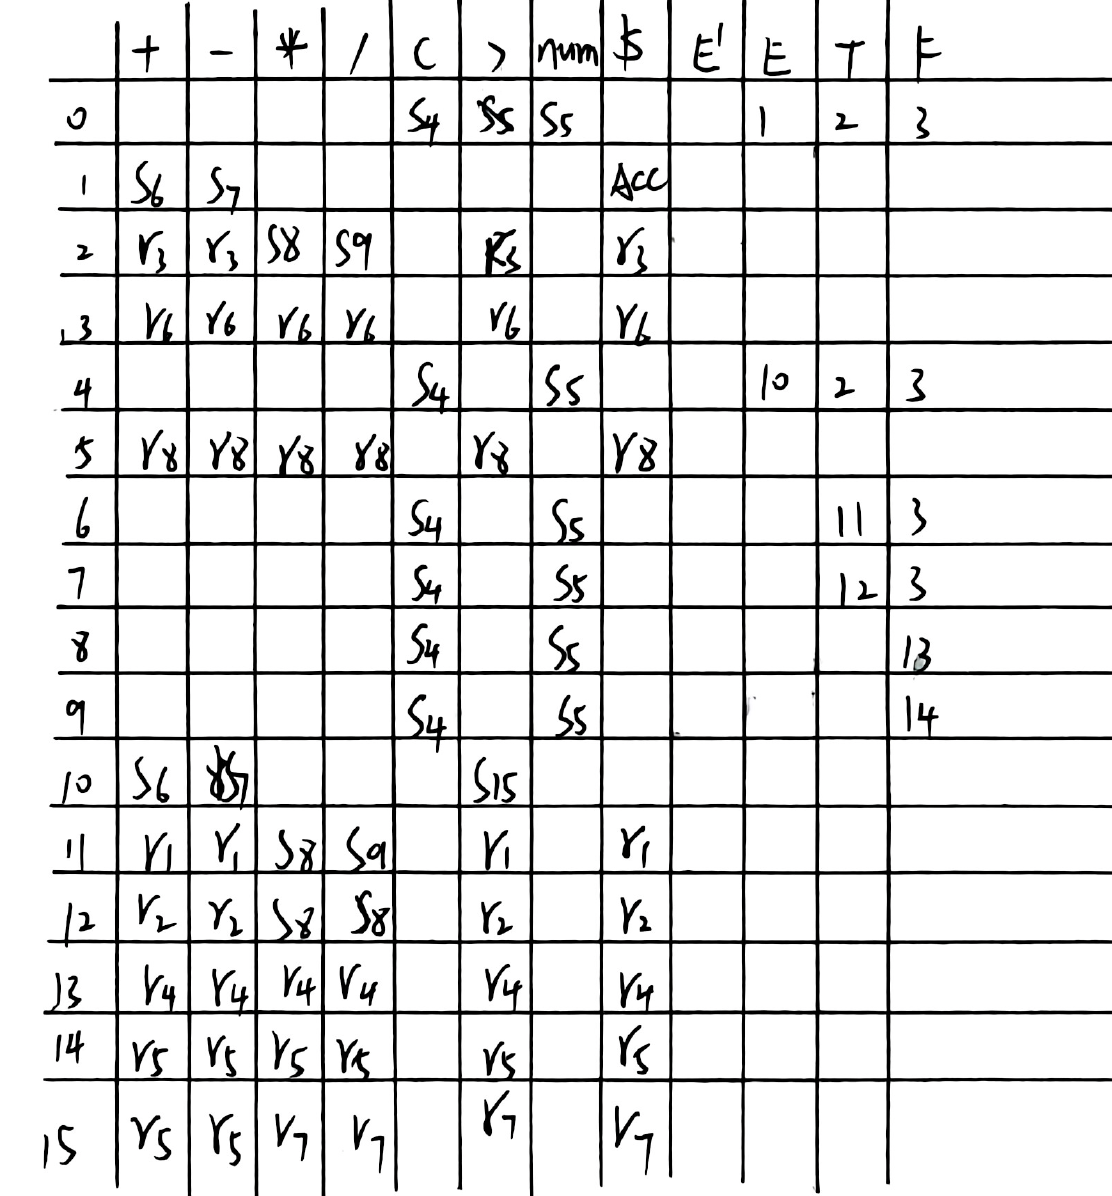 + - * / ( ) num $ E' E T F
0 S4 S5 1 2 3
1 S6 S7 Acc
2 r3 r3 S8 S9 r3
3 r6 r6 r6 r6 r6 r6
4 S4 S5 10 2 3
5 r8 r8 r8 r8 r8 r8
6 S4 S5 11 3
7 S4 S5 12 3
8 S4 S5 13
9 S4 S5 14
10 S6 S15
11 r1 r1 S8 S9 r1 r1
12 r2 r2 S8 S8 r2 r2
13 r4 r4 r4 r4 r4 r4
14 r5 r5 r5 r5 r5 r5
15 r5 r5 r7 r7 r7 r7